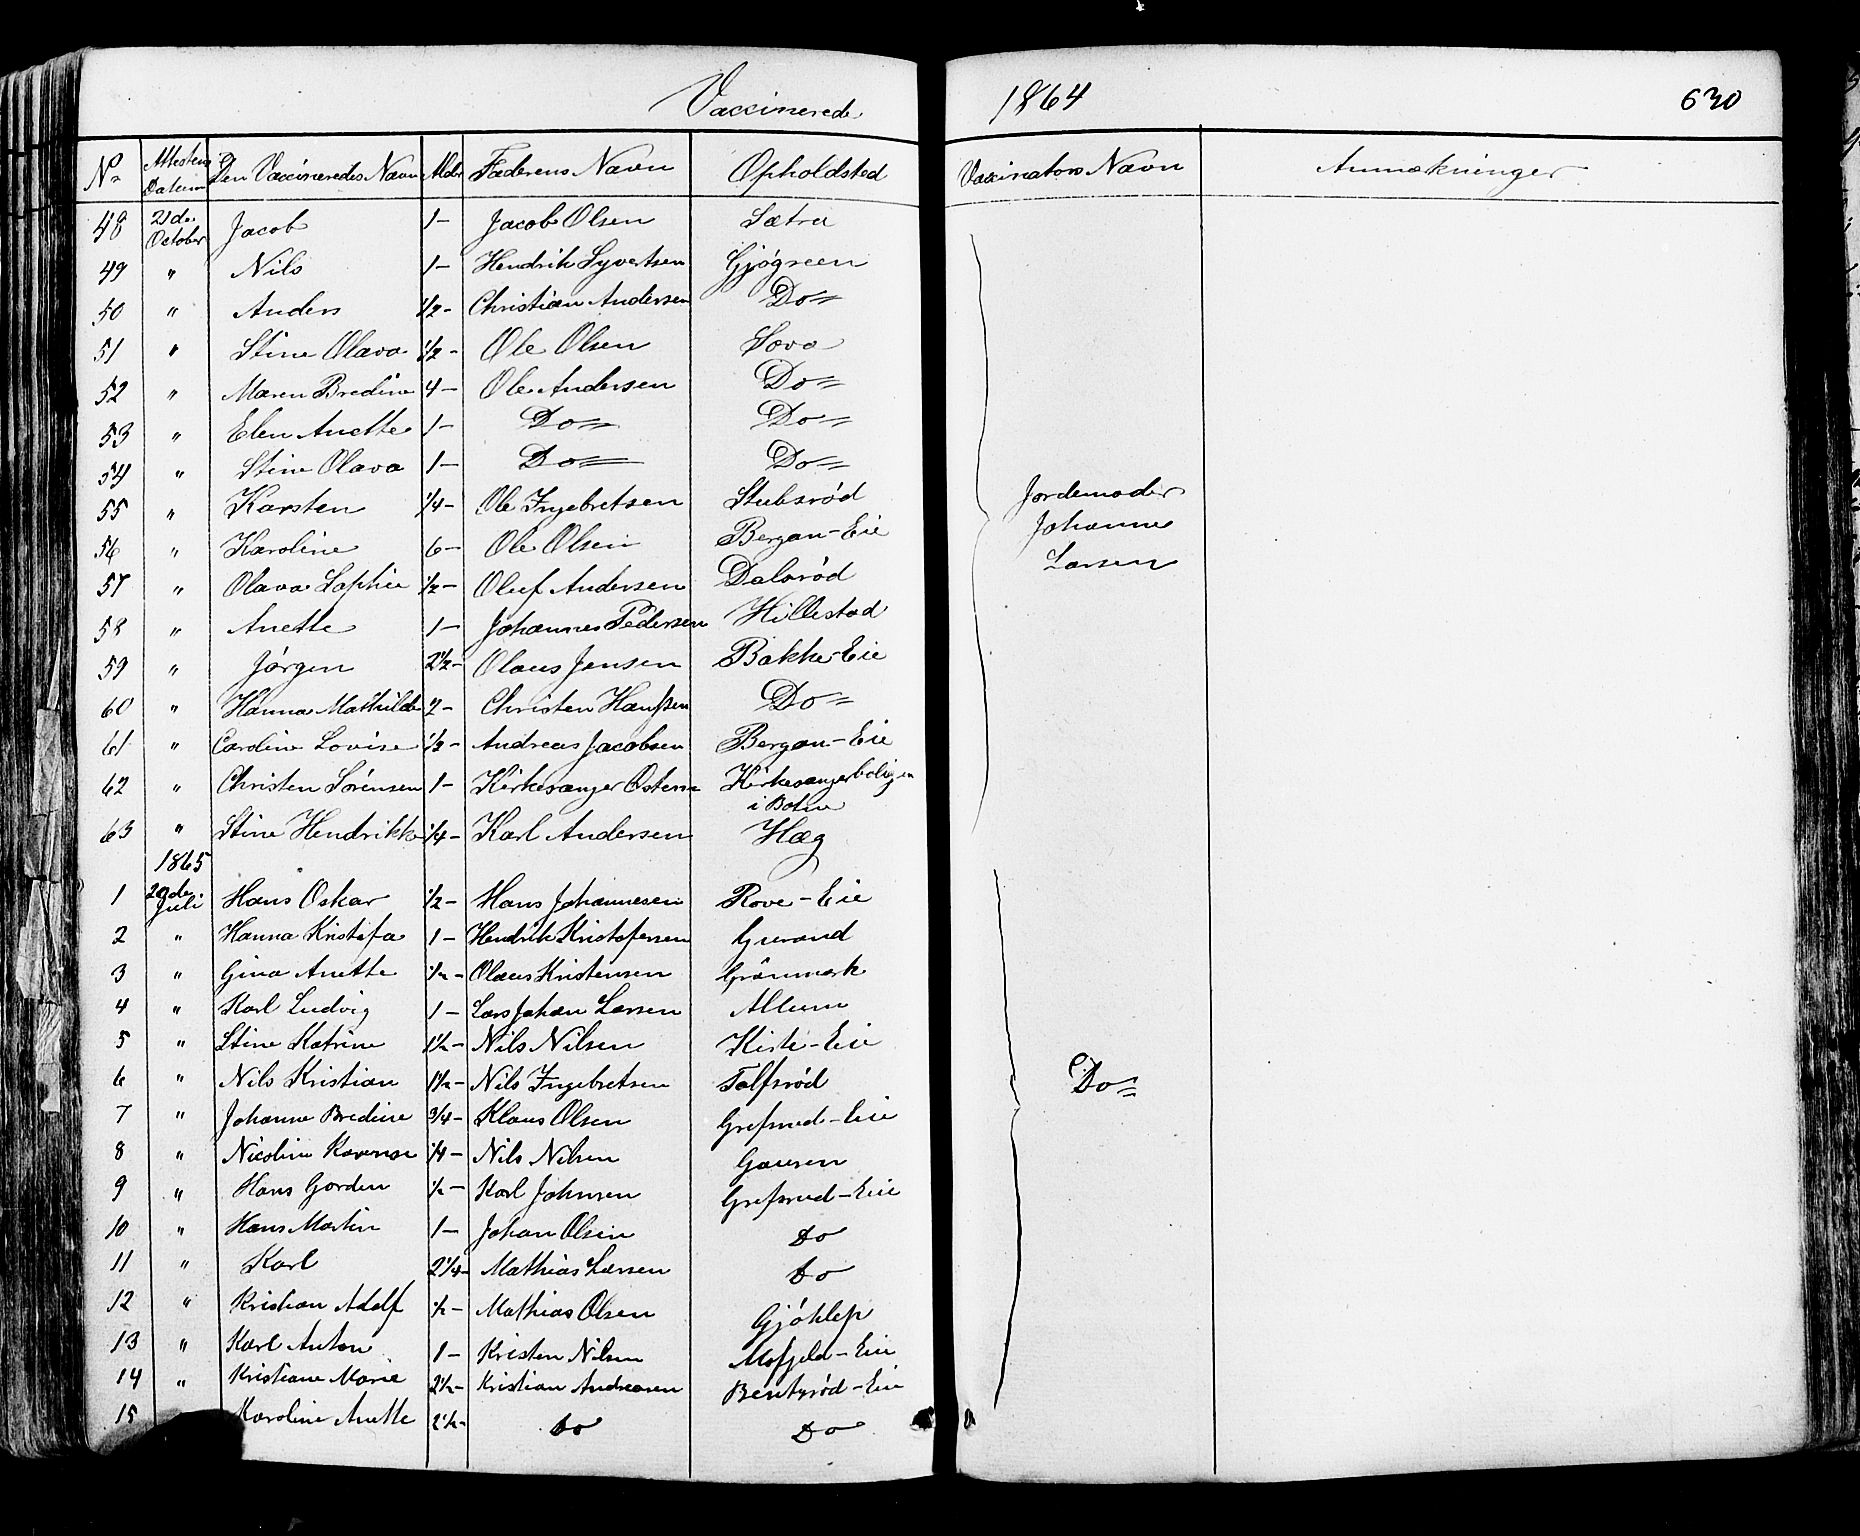 Vaccinerede 1864 630
Nr Attestens Datum Den Vaccineredes Navn Alder Faderens Navn Opholdsted Vaccinators Navn Anmærkninger
48 21de October Jacob 1– Jacob Olsen Sætra
49 " Nils 1– Hendrik Syvertsen Gjøgreen
50 " Anders 1/2– Christian Andersen Do=
51 " Stine Olava 1/2– Ole Olsen Sova
52 " Maren Bredine 4– Ole Andersen Do=
53 " Elen Anette 1– Do= Do=
54 " Stine Olava 1– Do= Do=
55 " Karsten 1/4– Ole Ingebretsen Stubsrød Jordemoder
56 " Karoline 6– Ole Olsen Bergan–Eie Johanne
57 " Olava Sophie 1/2– Oluf Andersen Dalsrød Larsen
58 " Anette 1– Johannes Pedersen Hillestad
59 " Jørgen 2 1/2– Olaus Jensen Bakke–Eie
60 " Hanna Mathilde 2– Christen Hanssen Do=
61 " Caroline Lovise 1/2– Andreas Jacobsen Bergan–Eie
62 " Christen Sørensen 1– Kirkesanger Kirkesangerboligen
i Botne
63 " Stine Hendrikke 1/4– Karl Andersen Hæg
1865
1 20de Juli Hans Oskar 1/2– Hans Johannesen Rove–Eie
2 " Hanna Kristofa 1– Hendrik Kristofersen
3 " Gina Anette 1/2– Olaus Kristensen Grønmark
4 " Karl Ludvig 1– Lars Johan Larsen Allum
5 " Stine Katrine 1 1/2– Nils Nilsen –Eie
6 " Nils Kristian 1 1/2– Nils Ingebretsen Tolfsrød Do=
7 " Johanne Bredine 3/4– Klaus Olsen Grefsrud–Eie
8 " Nicoline 1/4– Nils Nilsen Gausen
9 " Hans Gorden 1/2– Karl Johnsen Grefsrud–Eie
10 " Hans Martin 1– Johan Olsen Do
11 " Karl 2 1/4– Mathias Larsen Do
12 " Kristian Adolf 1/2– Mathias Olsen Gjøklep
13 " Karl Anton 1– Kristen Nilsen Mofjeld–Eie
14 " Kristiane Marie 2 1/2– Kristian Andreasen Bentsrød–Eie
15 Karoline Anette 2 1/2– Do Do